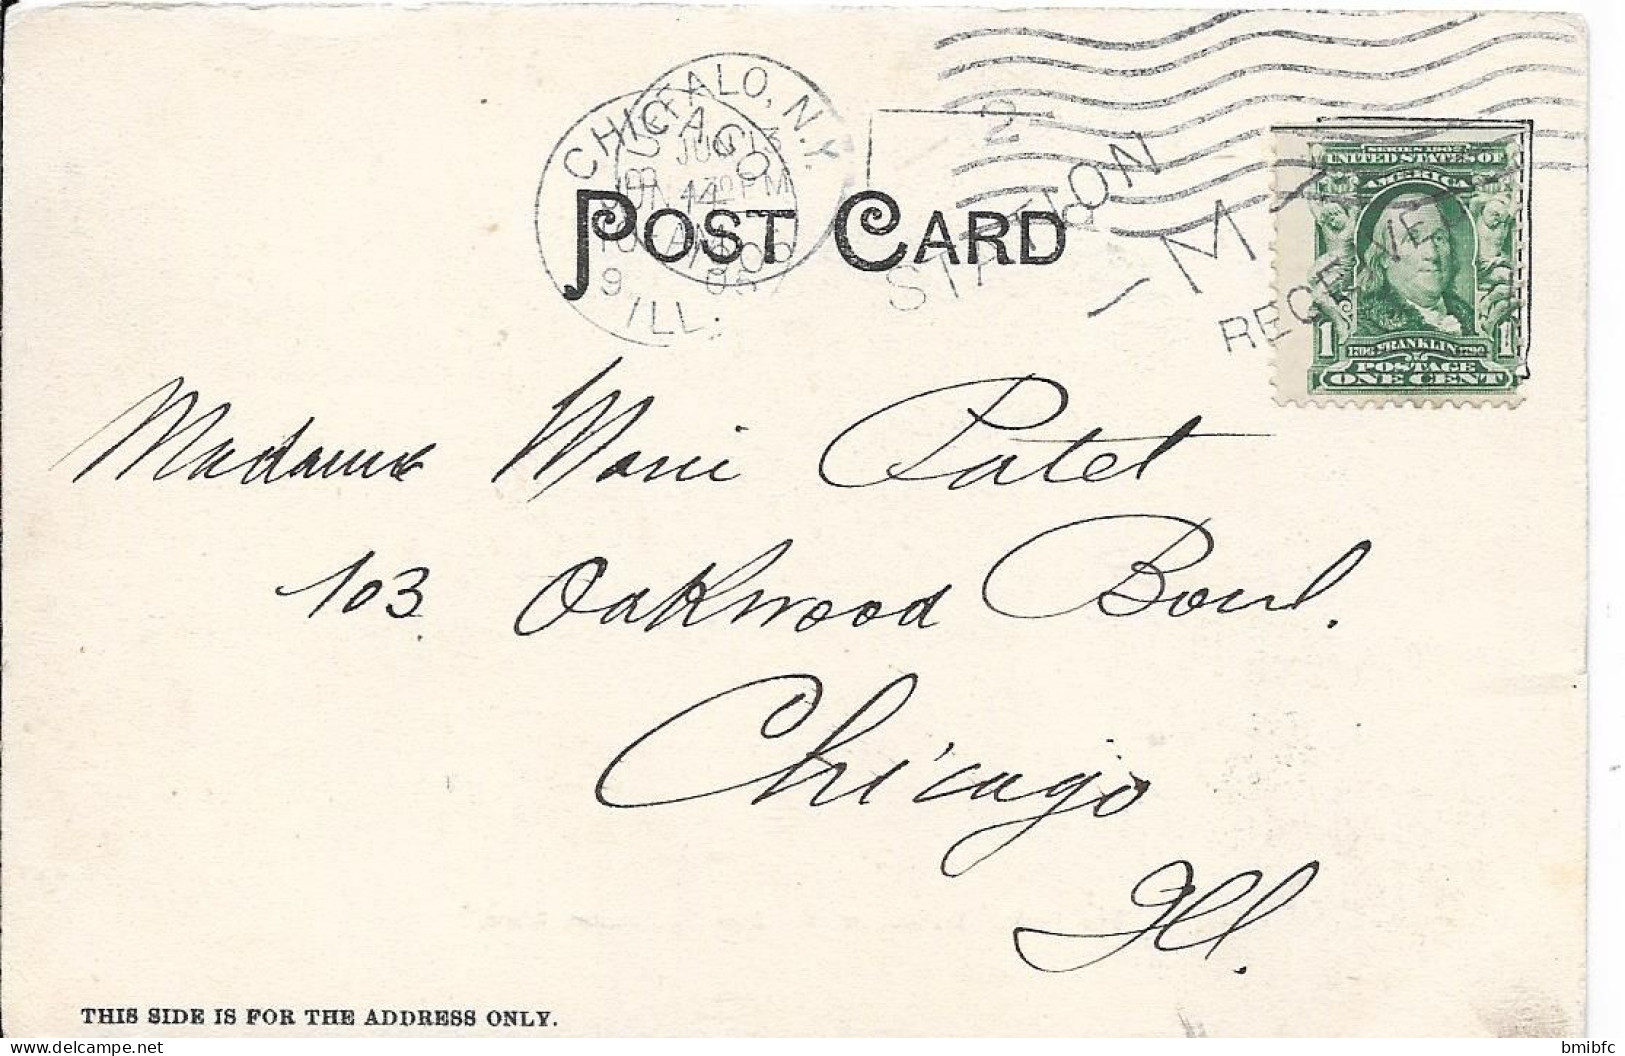 BUFFALO, N.Y.
JUN 13
CHICAGO
JUN 14
ILL.
2
STATION
M
RECEIVE
POST CARD
SERIES 1902
UNITED STATES OF
AMERICA
1706 FRANKLIN 1790
1 1
POSTAGE
ONE CENT
Madame Marie Patet
103 Oakwood Boul.
Chicago
Ill.
THIS SIDE IS FOR THE ADDRESS ONLY.
bmibfc